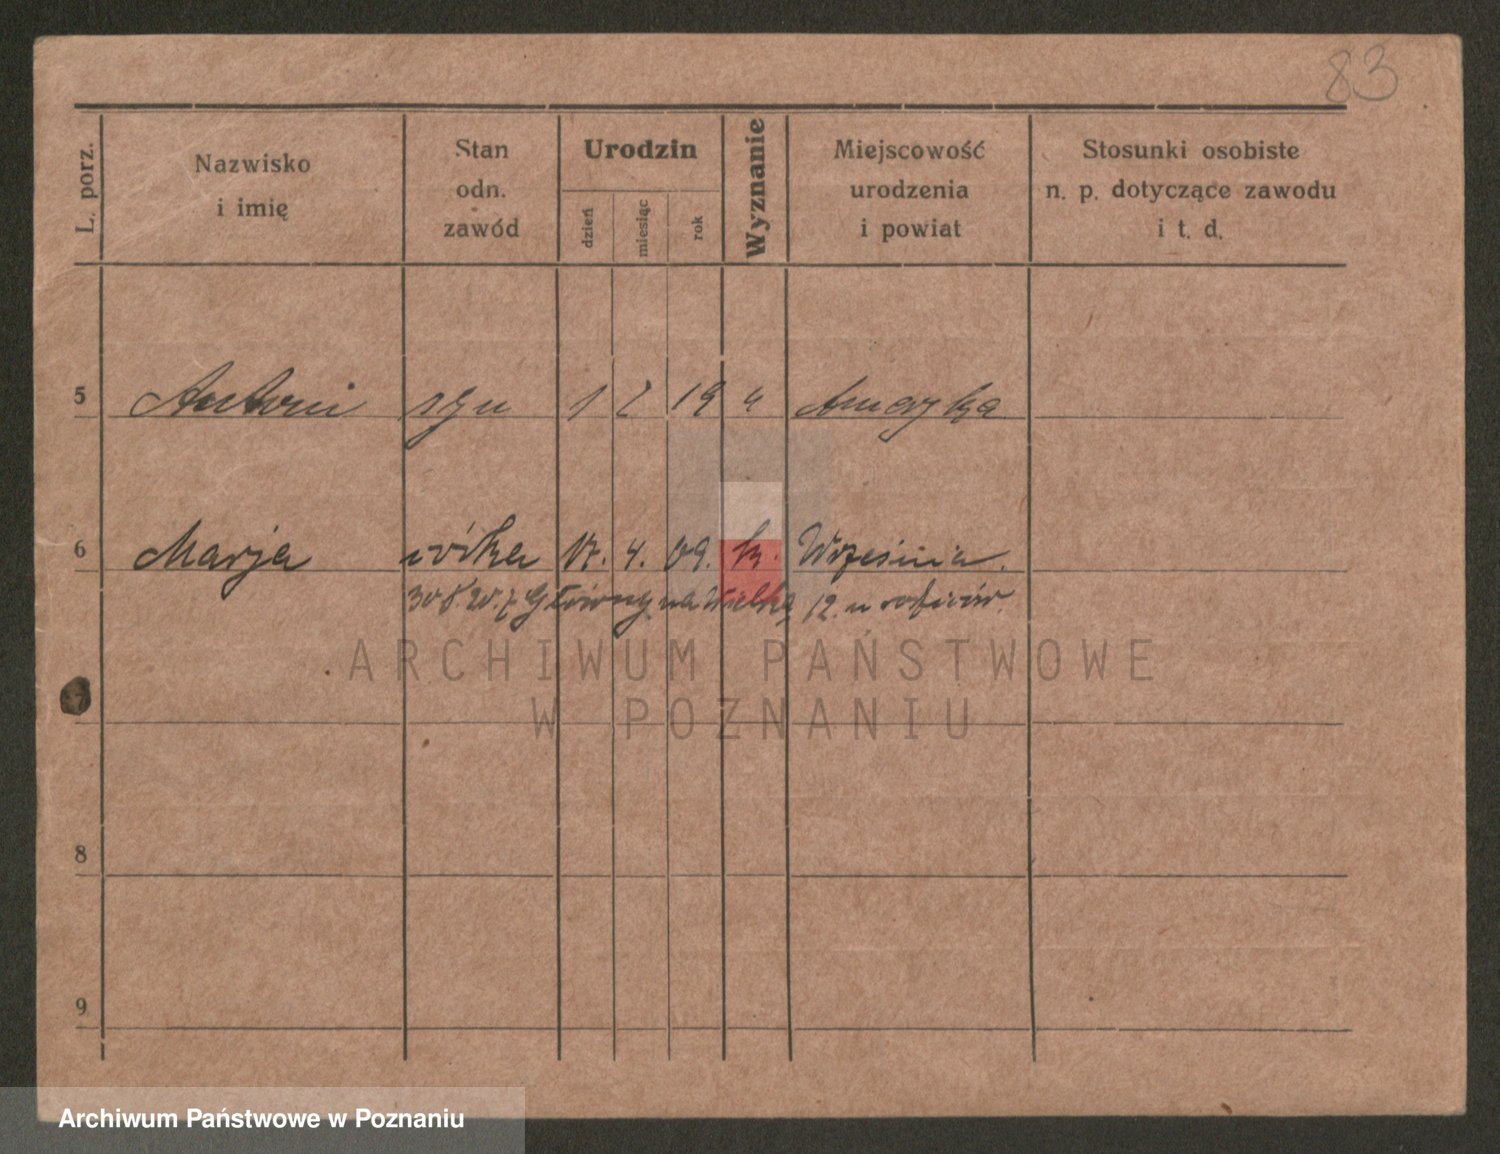 83
L. porz.
Nazwisko
i imię
Stan
odn.
zawód
Urodzin
dzień
miesiąc
rok
Wyznanie
Miejscowość
urodzenia
i powiat
Stosunki osobiste
n. p. dotyczące zawodu
i t. d.
5 Antoni syn 1 2 19 Ameryka
6 Marja córka 17. 4. 09. k. Września.
30.8.20. z Głównej na Wielką 12. u
ARCHIWUM PAŃSTWOWE
W POZNANIU
8
9
Archiwum Państwowe w Poznaniu